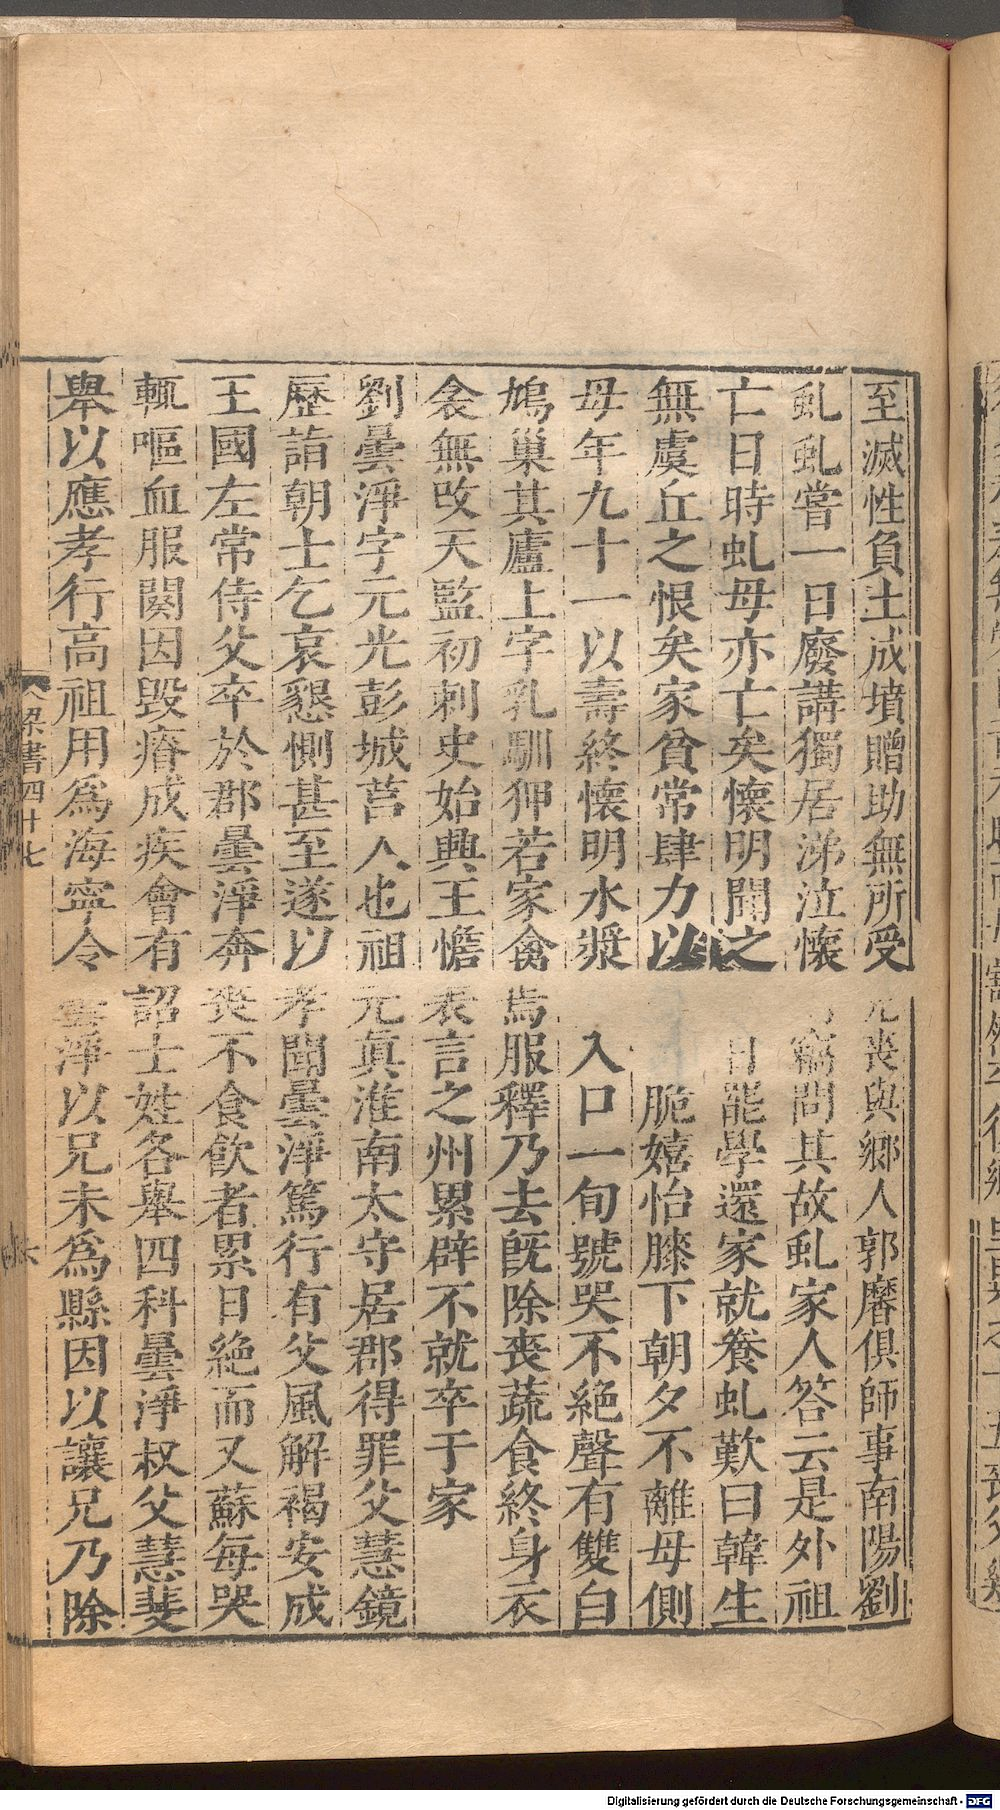 至滅性負土成墳贈助無所受免喪與鄉人郭麐俱師事南陽劉
虬虬嘗一日廢講獨居涕泣懷竊問其故虬家人答云是外祖
亡日時虬母亦亡矣懷明聞之日罷學還家就養虬歎曰韓生
無虞丘之恨矣家貧常肆力以脆嬉怡膝下朝夕不離母側
母年九十一以壽終懷明水漿入口一旬號哭不絕聲有雙白
鳩巢其廬上字乳馴狎若家禽焉服釋乃去旣除喪蔬食終身衣
衾無改天監初刺史始興王憺表言之州累辟不就卒于家
劉曇淨字元光彭城莒人也祖元眞淮南太守居郡得罪父慧鏡
歷詣朝士乞哀懇惻甚至遂以孝聞曇淨篤行有父風解褐安成
王國左常侍父卒於郡曇淨奔喪不食飲者累日絕而又蘇每哭
輒嘔血服闋因毀瘠成疾會有詔士姓各舉四科曇淨叔父慧斐
舉以應孝行高祖用爲海寧令曇淨以兄未爲縣因以讓兄乃除
梁書四十七
六
Digitalisierung gefördert durch die Deutsche Forschungsgemeinschaft - DFG